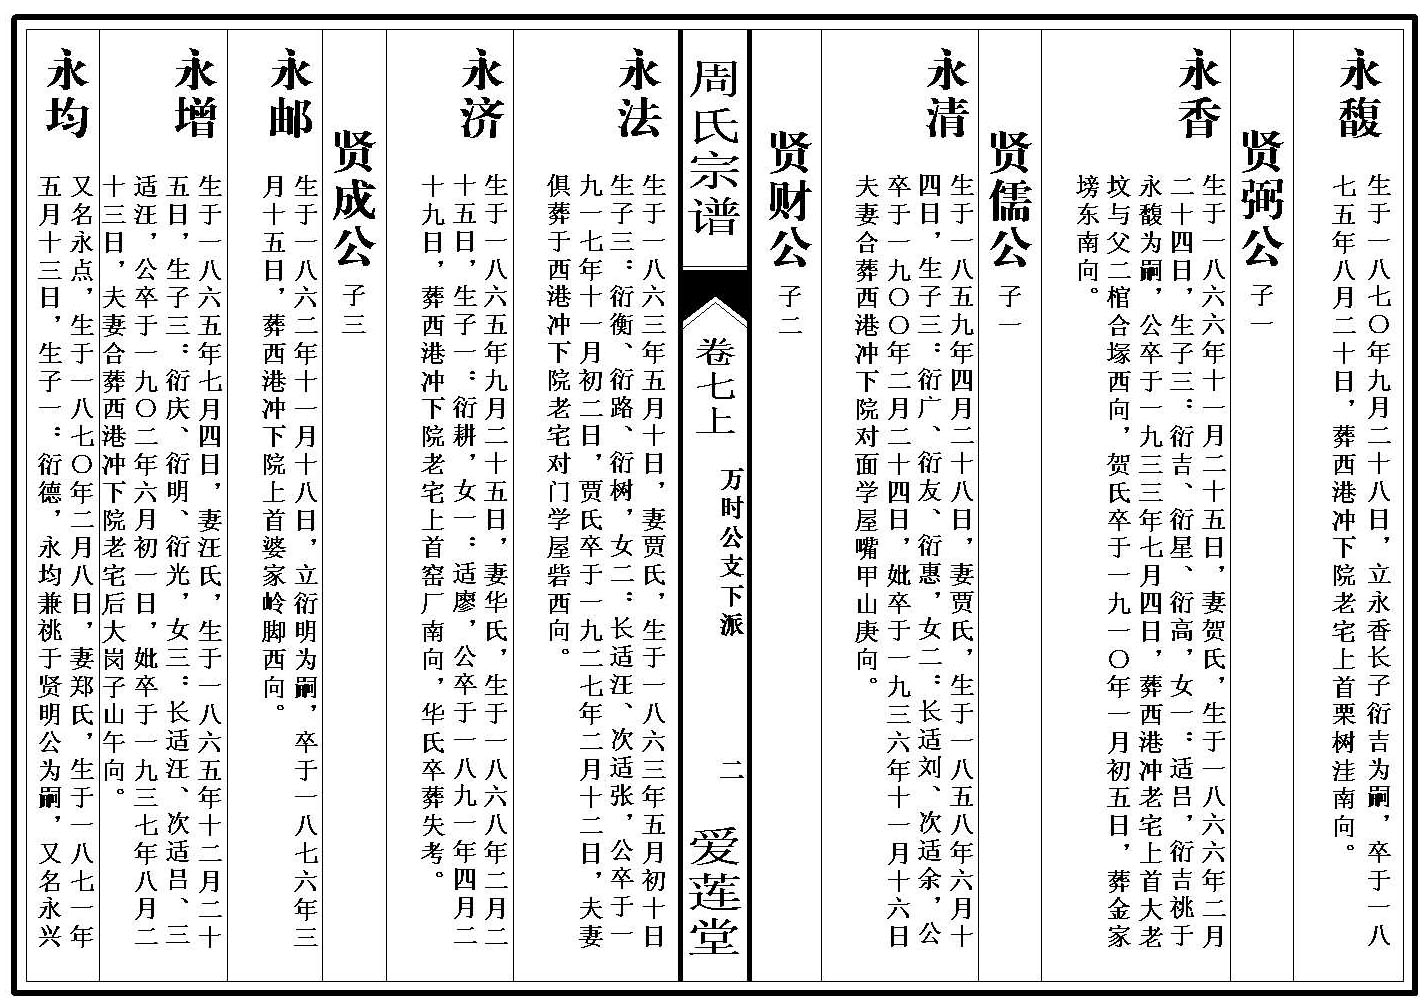 永馥
生于一八七〇年九月二十八日，立永香长子衍吉为嗣，卒于一八
七五年八月二十日，葬西港冲下院老宅上首栗树洼南向。
贤弼公 子一
永香
生于一八六六年十一月二十五日，妻贺氏，生于一八六六年二月
二十四日，生子三：衍吉、衍星、衍高，女一：适吕，衍吉祧于
永馥为嗣，公卒于一九三三年七月四日，葬西港冲老宅上首大老
坟与父二棺合塚西向，贺氏卒于一九一〇年一月初五日，葬金家
塝东南向。
贤儒公 子一
永清
生于一八五九年四月二十八日，妻贾氏，生于一八五八年六月十
四日，生子三：衍广、衍友、衍惠，女二：长适刘、次适余，公
卒于一九〇〇年二月二十四日，妣卒于一九三六年十一月十六日
夫妻合葬西港冲下院对面学屋嘴甲山庚向。
贤财公 子二
周氏宗谱
卷七上
万时公支下派
二
爱莲堂
永法
生于一八六三年五月十日，妻贾氏，生于一八六三年五月初十日
生子三：衍衡、衍路、衍树，女二：长适汪、次适张，公卒于一
九一七年十一月初二日，贾氏卒于一九二七年二月十二日，夫妻
俱葬于西港冲下院老宅对门学屋砦西向。
永济
生于一八六五年九月二十五日，妻华氏，生于一八六八年二月二
十五日，生子一：衍耕，女一：适廖，公卒于一八九一年四月二
十九日，葬西港冲下院老宅上首窑厂南向，华氏卒葬失考。
贤成公 子三
永邮
生于一八六二年十一月十八日，立衍明为嗣，卒于一八七六年三
月十五日，葬西港冲下院上首婆家岭脚西向。
永增
生于一八六五年七月四日，妻汪氏，生于一八六五年十二月二十
五日，生子三：衍庆、衍明、衍光，女三：长适汪、次适吕、三
适汪，公卒于一九〇二年六月初一日，妣卒于一九三七年八月二
十三日，夫妻合葬西港冲下院老宅后大岗子山午向。
永均
又名永点，生于一八七〇年二月八日，妻郑氏，生于一八七一年
五月十三日，生子一：衍德，永均兼祧于贤明公为嗣，又名永兴